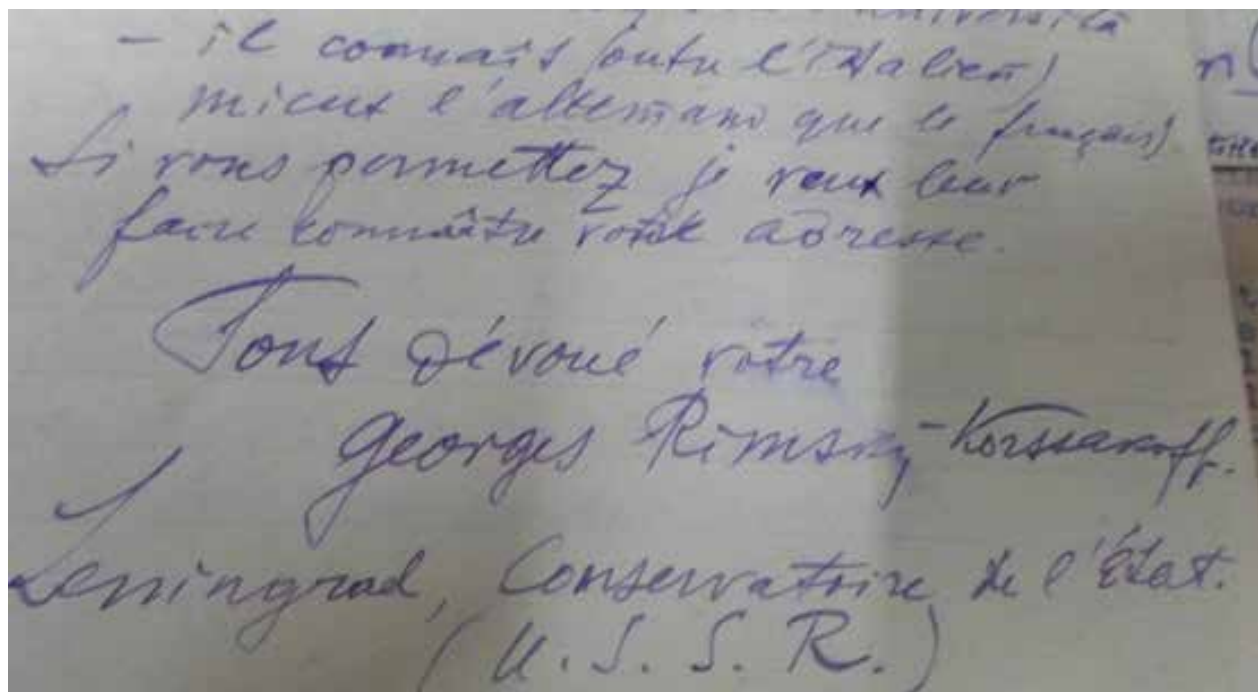 università
– il connais (outre l'italien)
mieux l'allemand que le français)
Si vous permettez je veux leur
faire connaître votre adresse.
Tout dévoué vôtre
Georges Rimsky-Korssakoff.
Leningrad, Conservatoire de l'État.
(U.S.S.R.)